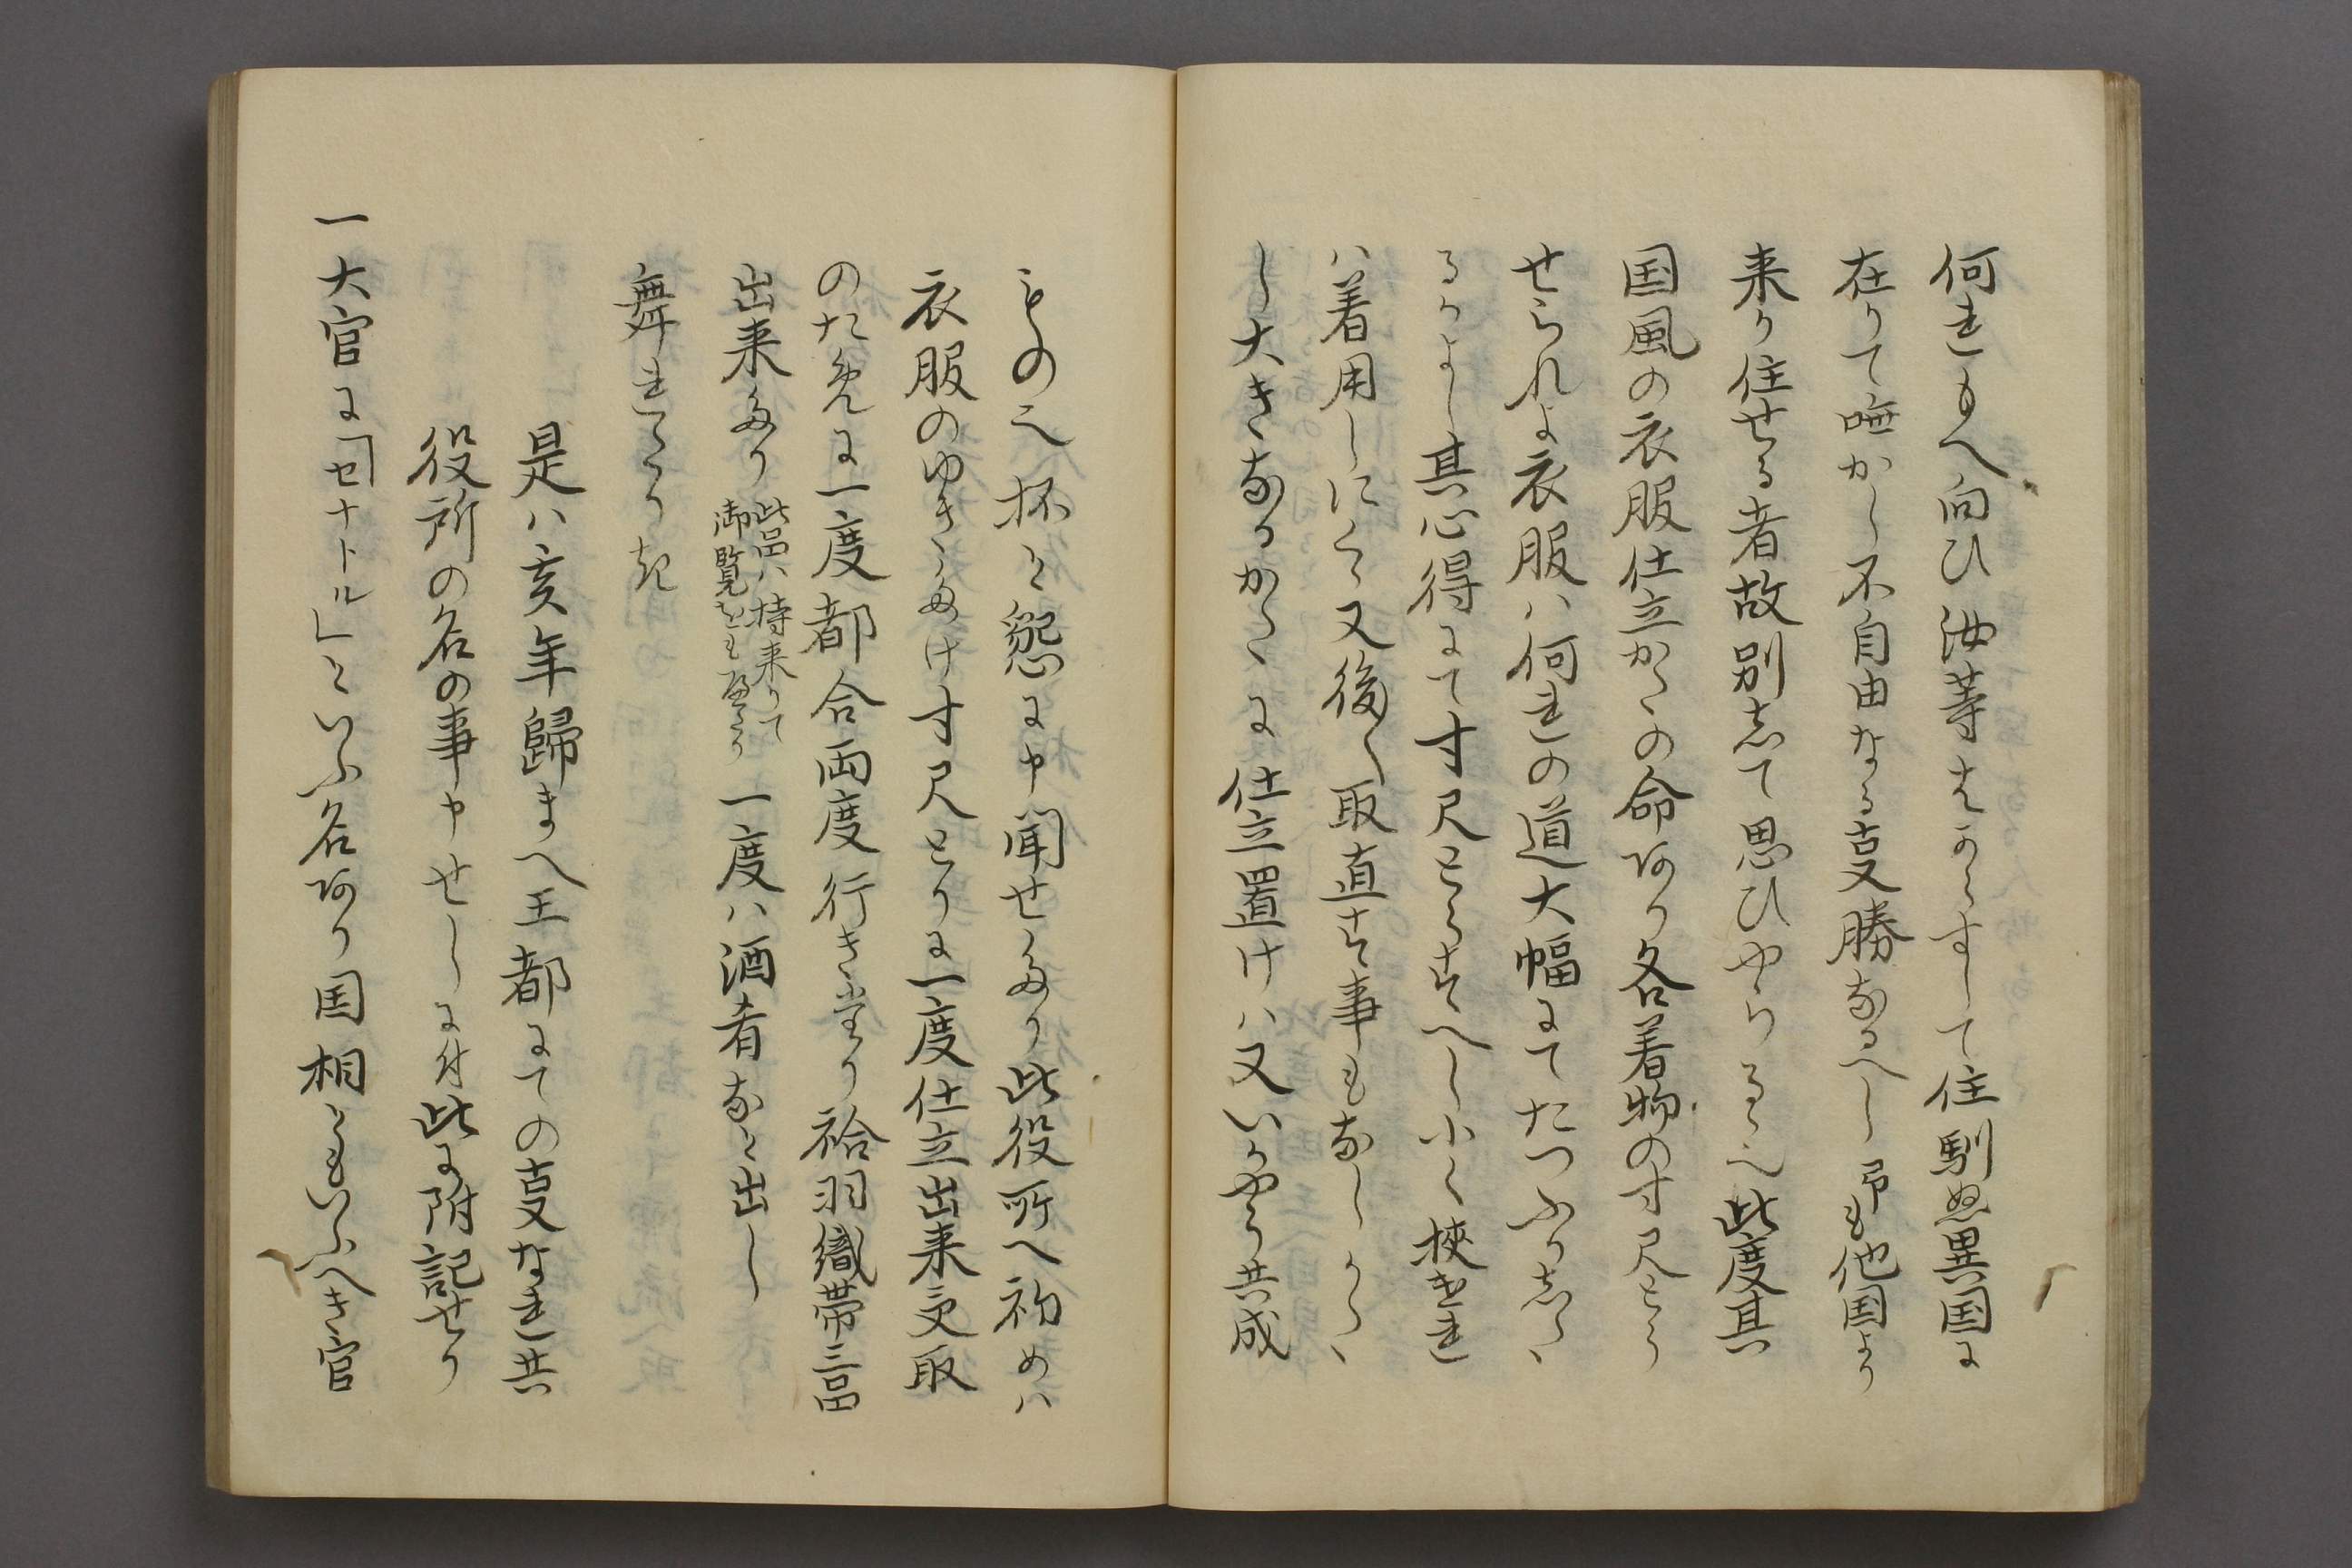 何れもへ向ひ汝等はからすして住馴ぬ異国に
在りて嘸かし不自由なる事勝なるへし予も他国より
来り住せる者故別して思ひやらるゝ也此度其
国風の衣服仕立かたの命あり各着物の寸尺とら
せられよ衣服は何れの道大幅にてたつふりしたる
かよし其心得にて寸尺とらすへし小く狭けれ
は着用しにくゝ又後〻取直す事もならす
し大きなるかたに仕立置けは又いかやう共成
もの也杯と懇に申聞せたり此役所へ初めは
衣服のゆきたけ寸尺とりに一度仕立出来受取
のために一度都合両度行きたり袷羽織帯三品
出来たり
此品は持来りて
御覧にも入たり
一度は酒肴なと出し
舞れたりき
是は亥年歸まへ王都にての事なれ共
役所の名の事申せしに付此に附記せり
一大官に「セナトル」といふ名あり国相ともいふへき官